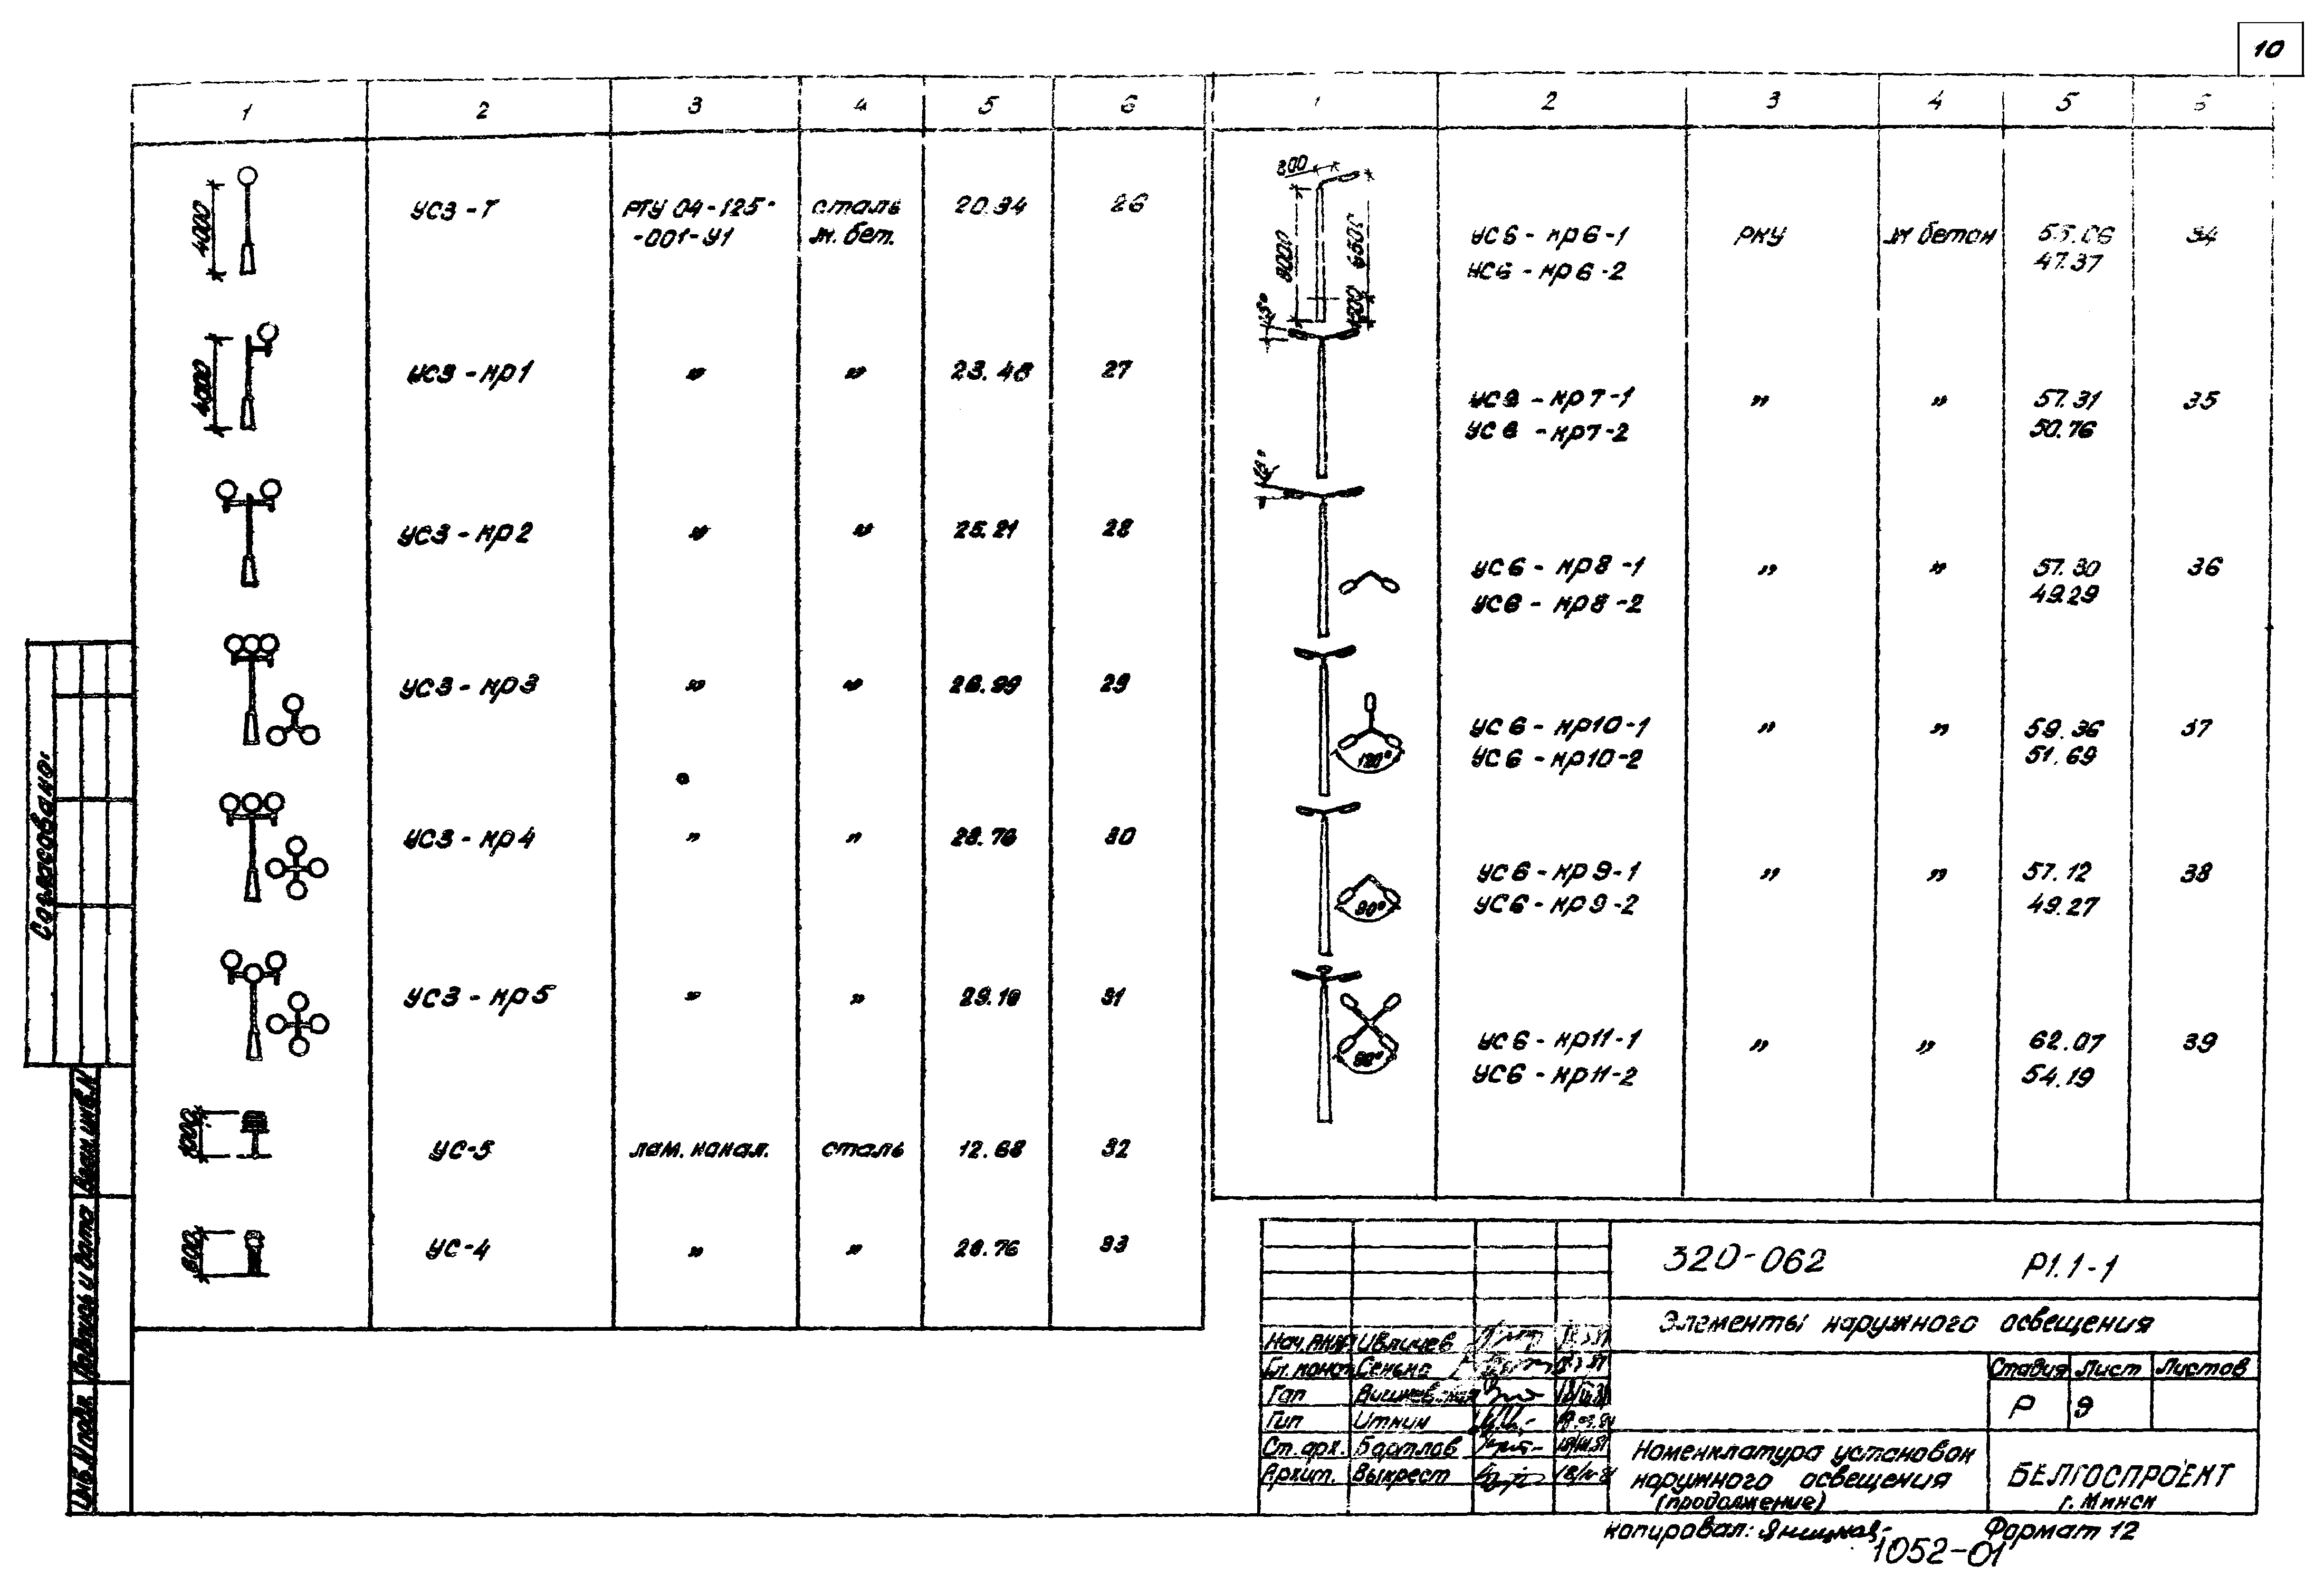 10
1 2 3 4 5 6
4000
УС3-Т РТУ 04-125- сталь 20.34 26
-001-У1 ж. бет.
4000
УС3-кр1 „ „ 23.48 27
УС3-кр2 „ „ 25.21 28
УС3-кр3 „ „ 26.99 29
УС3-кр4 „ „ 28.76 30
УС3-кр5 „ „ 29.10 31
1000
УС-5 лам. накал. сталь 12.68 32
УС-4 „ „ 28.76 33
1 2 3 4 5 6
800
8000
6500
1500
УС6-кр6-1 РКУ ж бетон 55.06 34
УС6-кр6-2 47.37
15°
УС6-кр7-1 „ „ 57.31 35
УС6-кр7-2 50.76
15°
УС6-кр8-1 „ „ 57.30 36
УС6-кр8-2 49.29
УС6-кр10-1 „ „ 59.36 37
УС6-кр10-2 51.69
120°
УС6-кр9-1 „ „ 57.12 38
УС6-кр9-2 49.27
90°
УС6-кр11-1 „ „ 62.07 39
УС6-кр11-2 54.19
90°
Согласовано:
Взам. инв. N
Подпись и дата
Инв. N подл.
320-062 Р1.1-1
Элементы наружного освещения
Стадия Лист Листов
Р 9
Нач.
Гл. конст Сенько
Гап Вишневская
Гип Иткин
Ст. арх. Бартлов
Архит. Выкрест
Номенклатура установок
наружного освещения
(продолжение)
БЕЛГОСПРОЕКТ
г. Минск
Копировал: Формат 12
1052-01